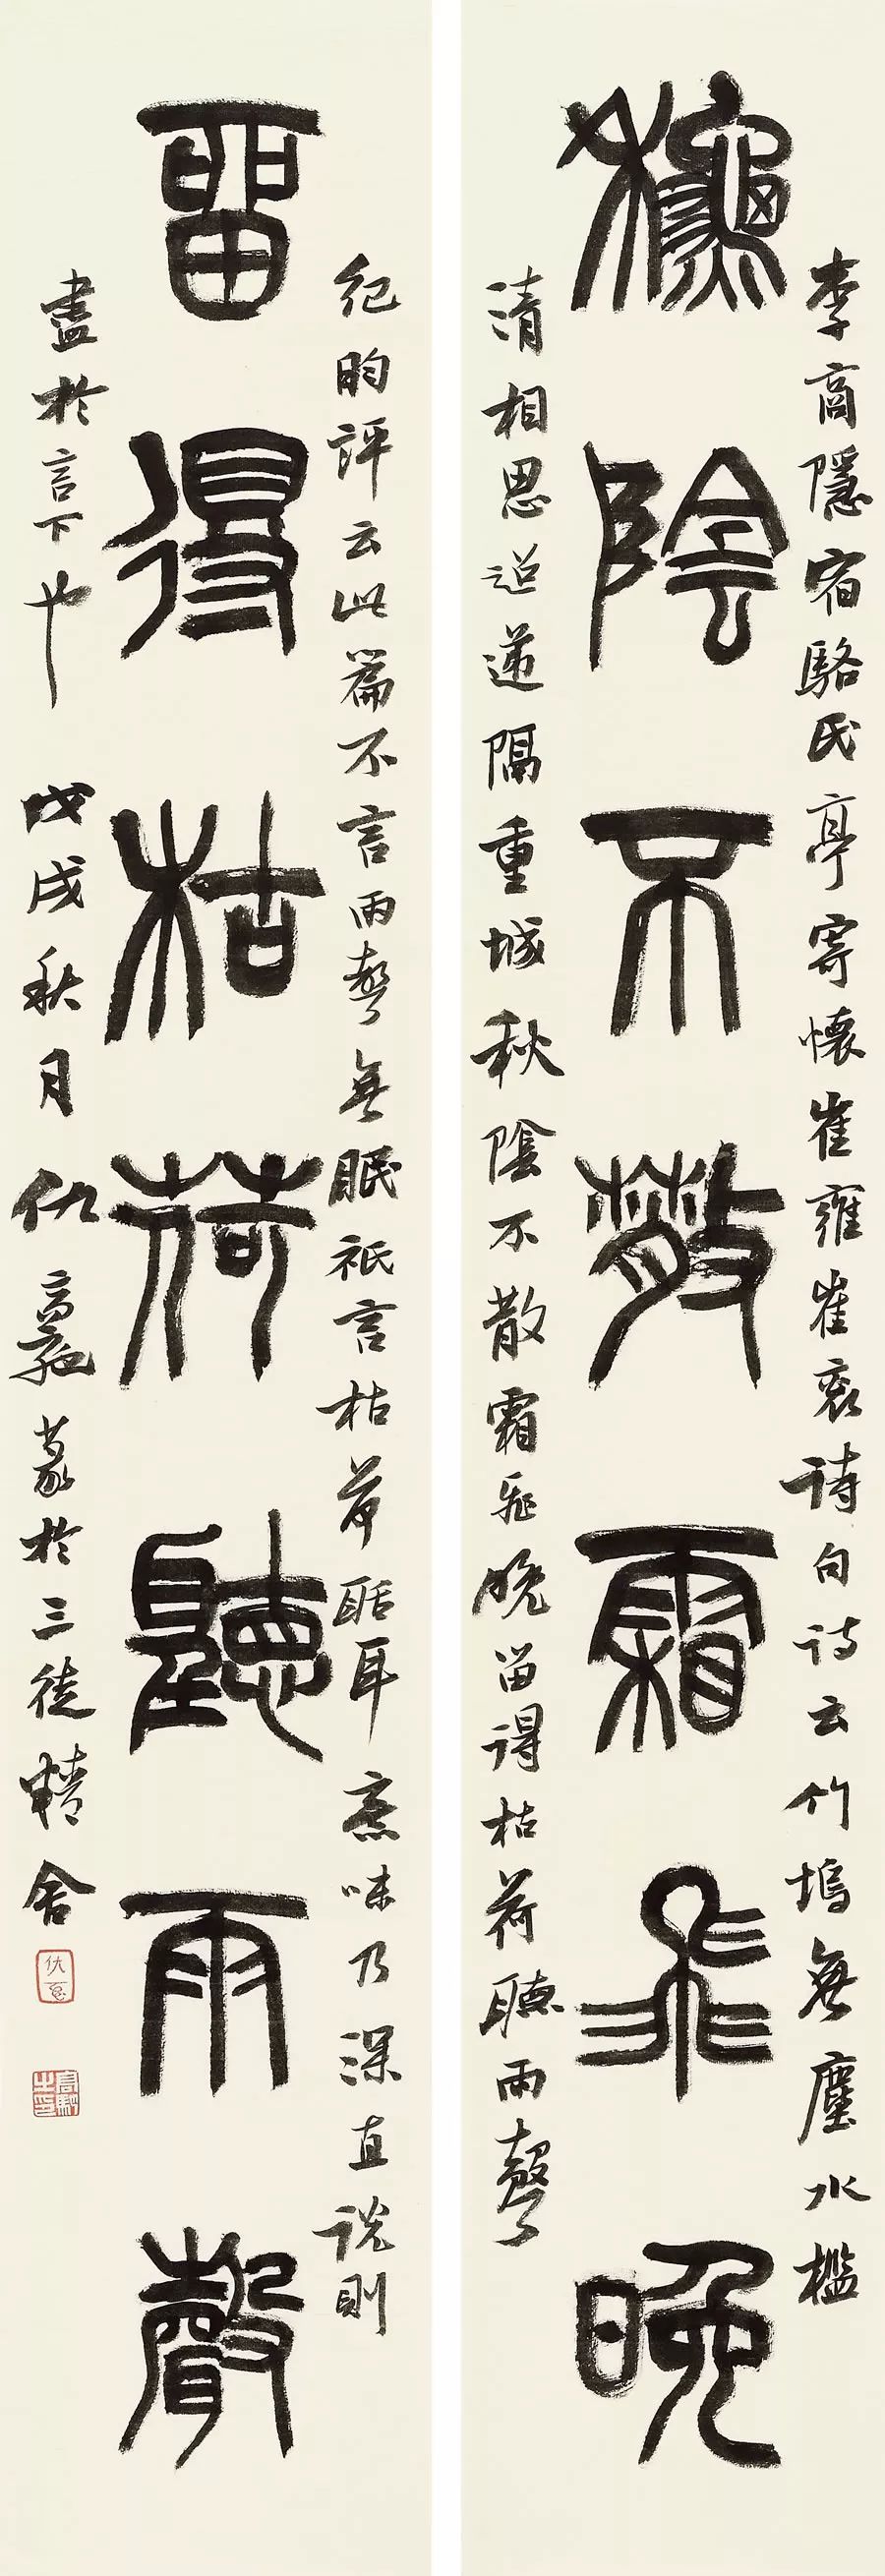 李商隱宿駱氏亭寄懷崔雍崔袞詩句詩云竹塢無塵水檻
龝陰不散霜飛晚
清相思迢遞隔重城秋陰不散霜飛晚留得枯荷聽雨聲
紀昀評云此篇不言雨聲無眠祇言枯荷聒耳意味乃深直說則
留得枯荷聽雨聲
盡於言下也 戊戌秋月仇高馳篆於三徒精舍
高馳之印